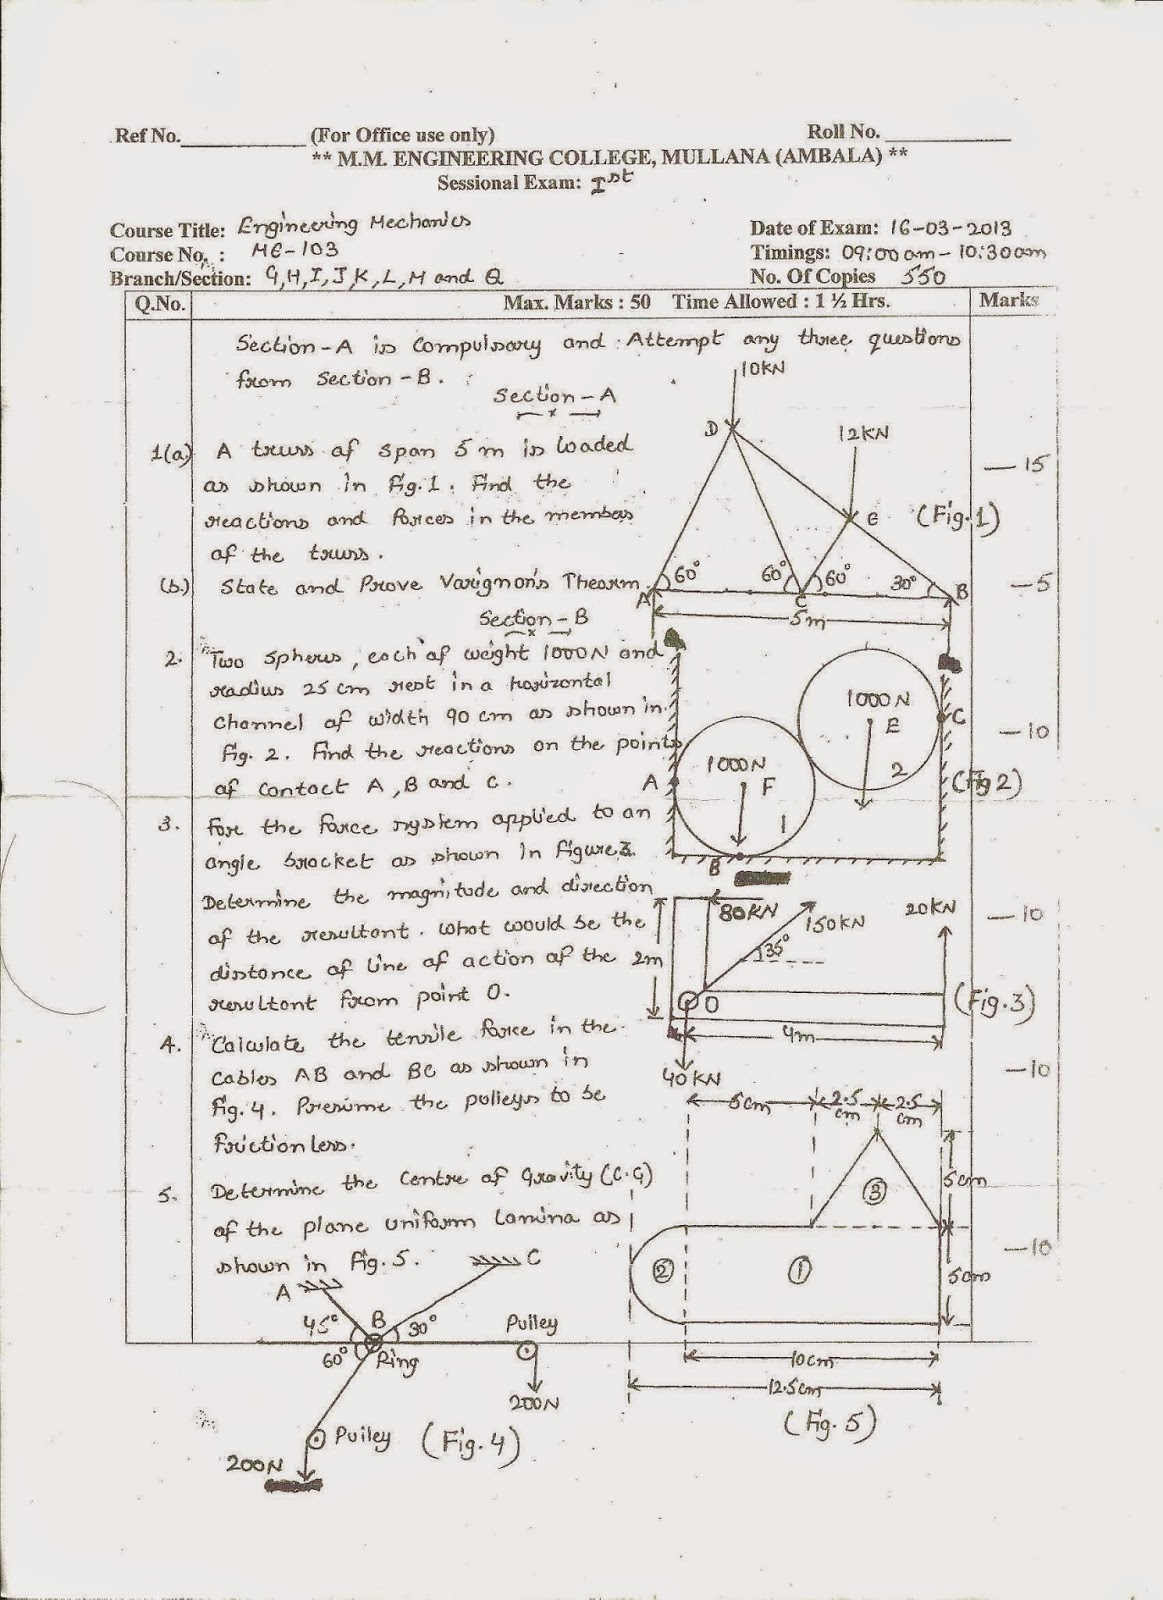 Ref No.__________ (For Office use only) Roll No. __________
** M.M. ENGINEERING COLLEGE, MULLANA (AMBALA) **
Sessional Exam: Ist
Course Title: Engineering Mechanics Date of Exam: 16-03-2013
Course No. : ME-103 Timings: 09:00 am - 10:30am
Branch/Section: G,H,I,J,K,L,M and Q No. Of Copies 550
Q.No. Max. Marks : 50 Time Allowed : 1 ½ Hrs. Marks
Section-A is Compulsory and Attempt any three questions
from Section-B.
Section-A
1(a) A truss of span 5 m is loaded — 15
as shown in Fig.1. Find the
reactions and forces in the members
of the truss.
(b.) State and Prove Varignon's Theorm. — 5
10KN
D
12KN
E
(Fig.1)
60° 60° 60° 30°
A C B
5m
Section-B
2. Two spheres, each of weight 1000N and
radius 25 cm rest in a horizontal
channel of width 90 cm as shown in — 10
Fig. 2. Find the reactions on the points
of contact A, B and C.
1000N
E
C
2
1000N
A F
1
B
(Fig 2)
3. For the force system applied to an
angle bracket as shown in figure 3.
Determine the magnitude and direction — 10
of the resultant. What would be the
distance of line of action of the
resultant from point O.
80KN
150KN
20KN
35°
2m
O
(Fig.3)
4m
40KN
4. Calculate the tensile force in the
cables AB and BC as shown in — 10
Fig. 4. Presume the pulleys to be
frictionless.
5. Determine the Centre of Gravity (C.G)
of the plane uniform Lamina as
shown in Fig. 5. — 10
5cm 2.5 cm 2.5 cm
3
5cm
2 1
5cm
10cm
12.5cm
(Fig. 5)
A C
45° B 30° Pulley
60° Ring
200N
Pulley (Fig. 4)
200N